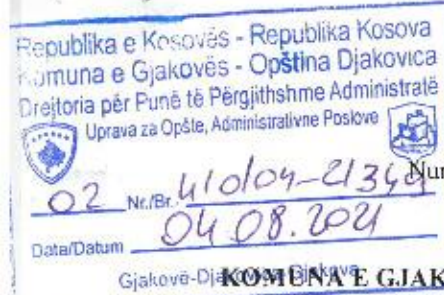 Republika e Kosovës - Republika Kosova
Komuna e Gjakovës - Opština Djakovica
Drejtoria për Punë të Përgjithshme Administratë
Uprava za Opšte, Administrativne Poslove
Nur
02 Nr./Br.
Data/Datum 04 08. 2021
Gjakovë-
KOMUNA E GJAK